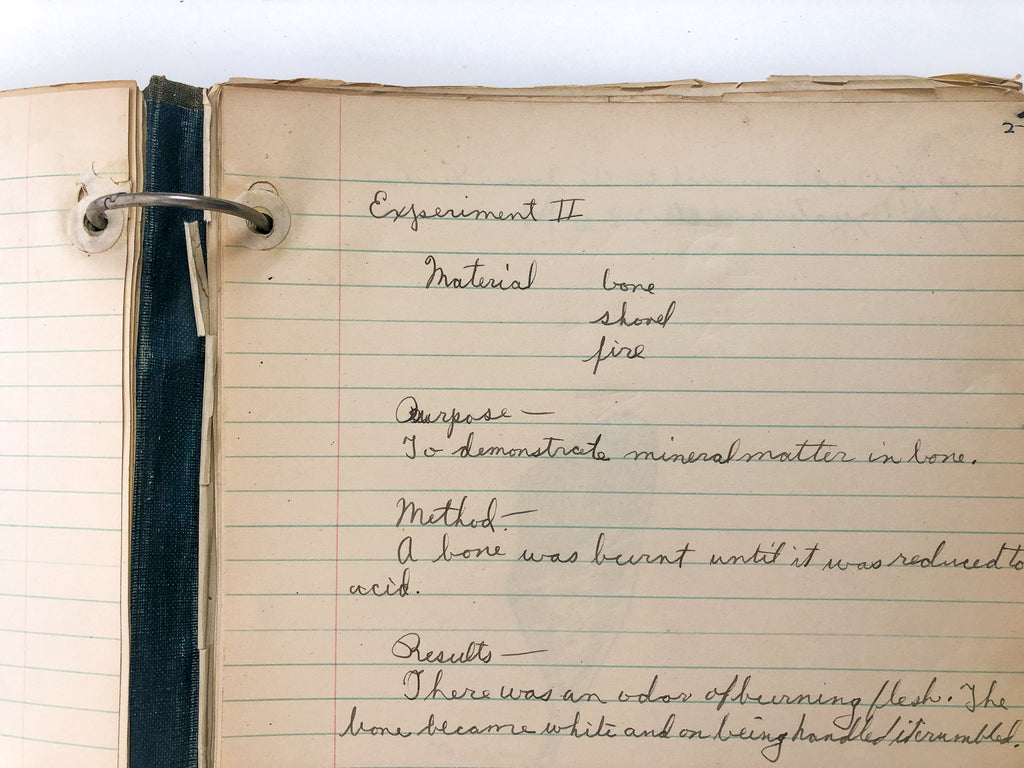 2-
Experiment II
Material bone
shovel
fire
Purpose —
To demonstrate mineral matter in bone.
Method. —
A bone was burnt until it was reduced to
acid.
Results —
There was an odor of burning flesh. The
bone became white and on being handled it crumbled.